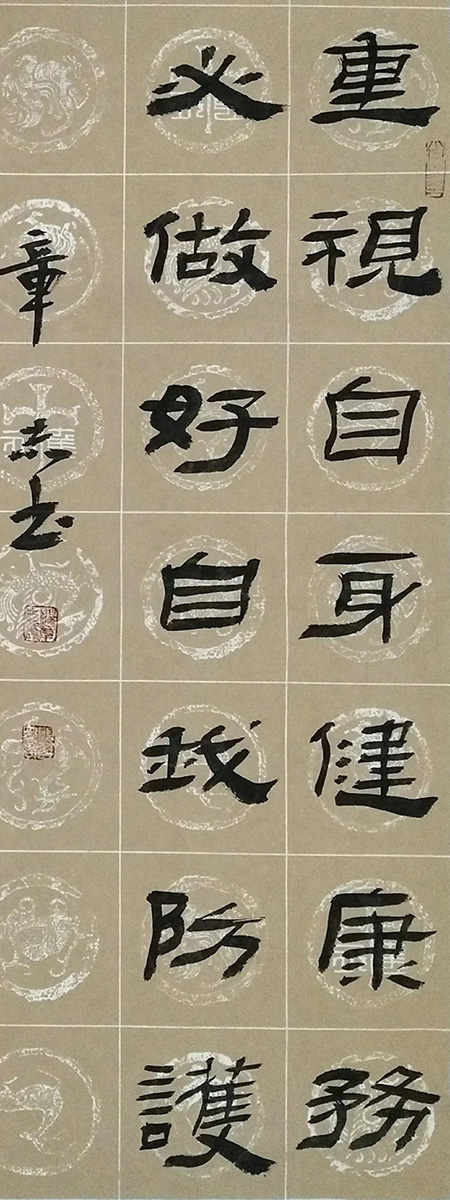 重視自身健康務
必做好自我防護
章志书